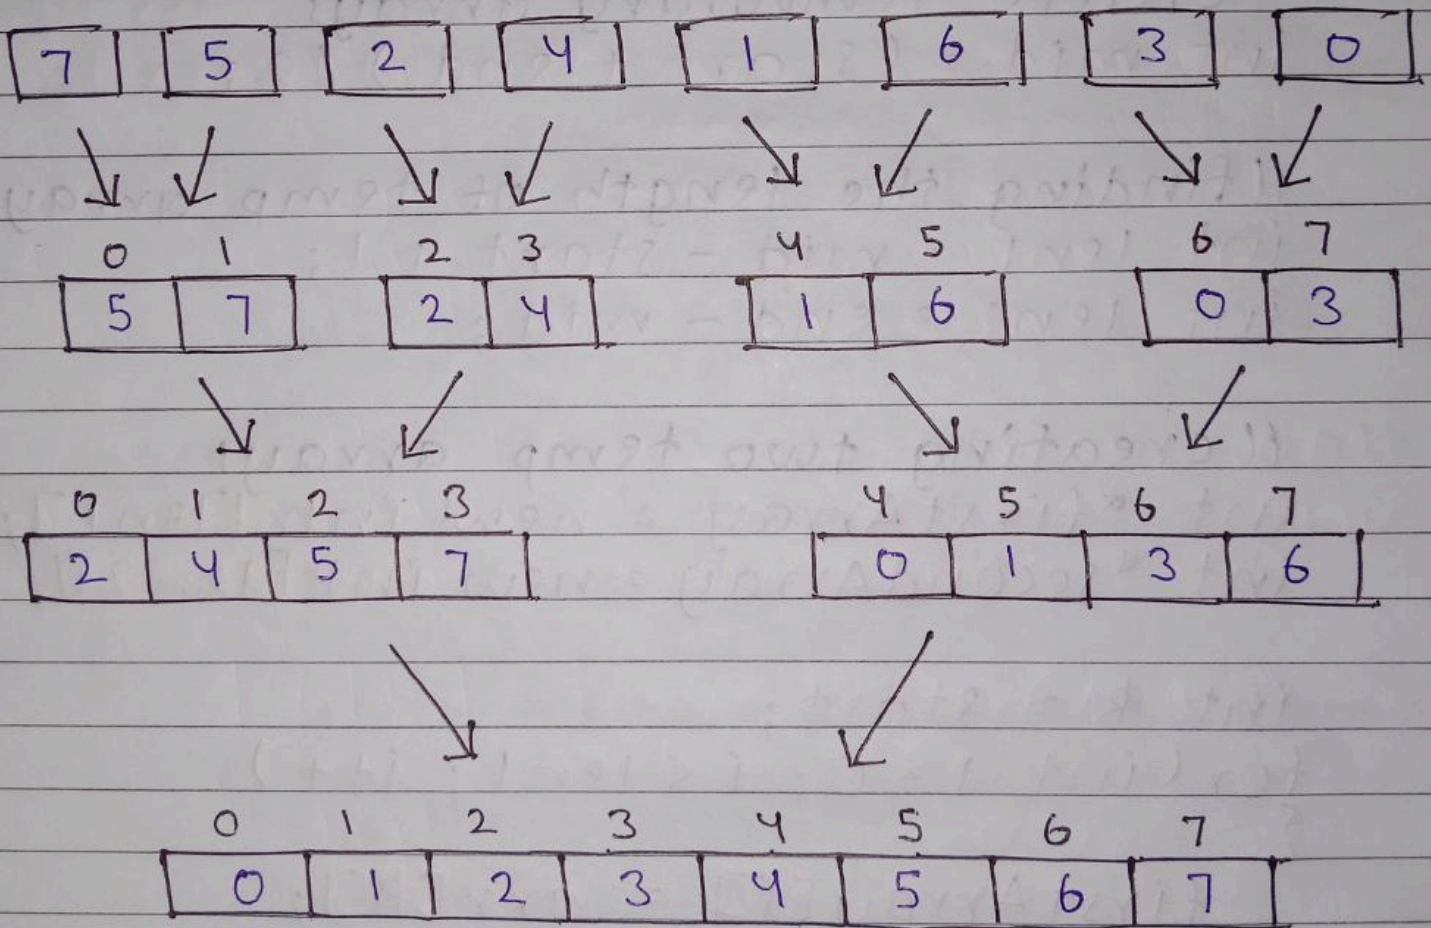 7 5 2 4 1 6 3 0
0 1 2 3 4 5 6 7
5 7 2 4 1 6 0 3
0 1 2 3 4 5 6 7
2 4 5 7 0 1 3 6
0 1 2 3 4 5 6 7
0 1 2 3 4 5 6 7